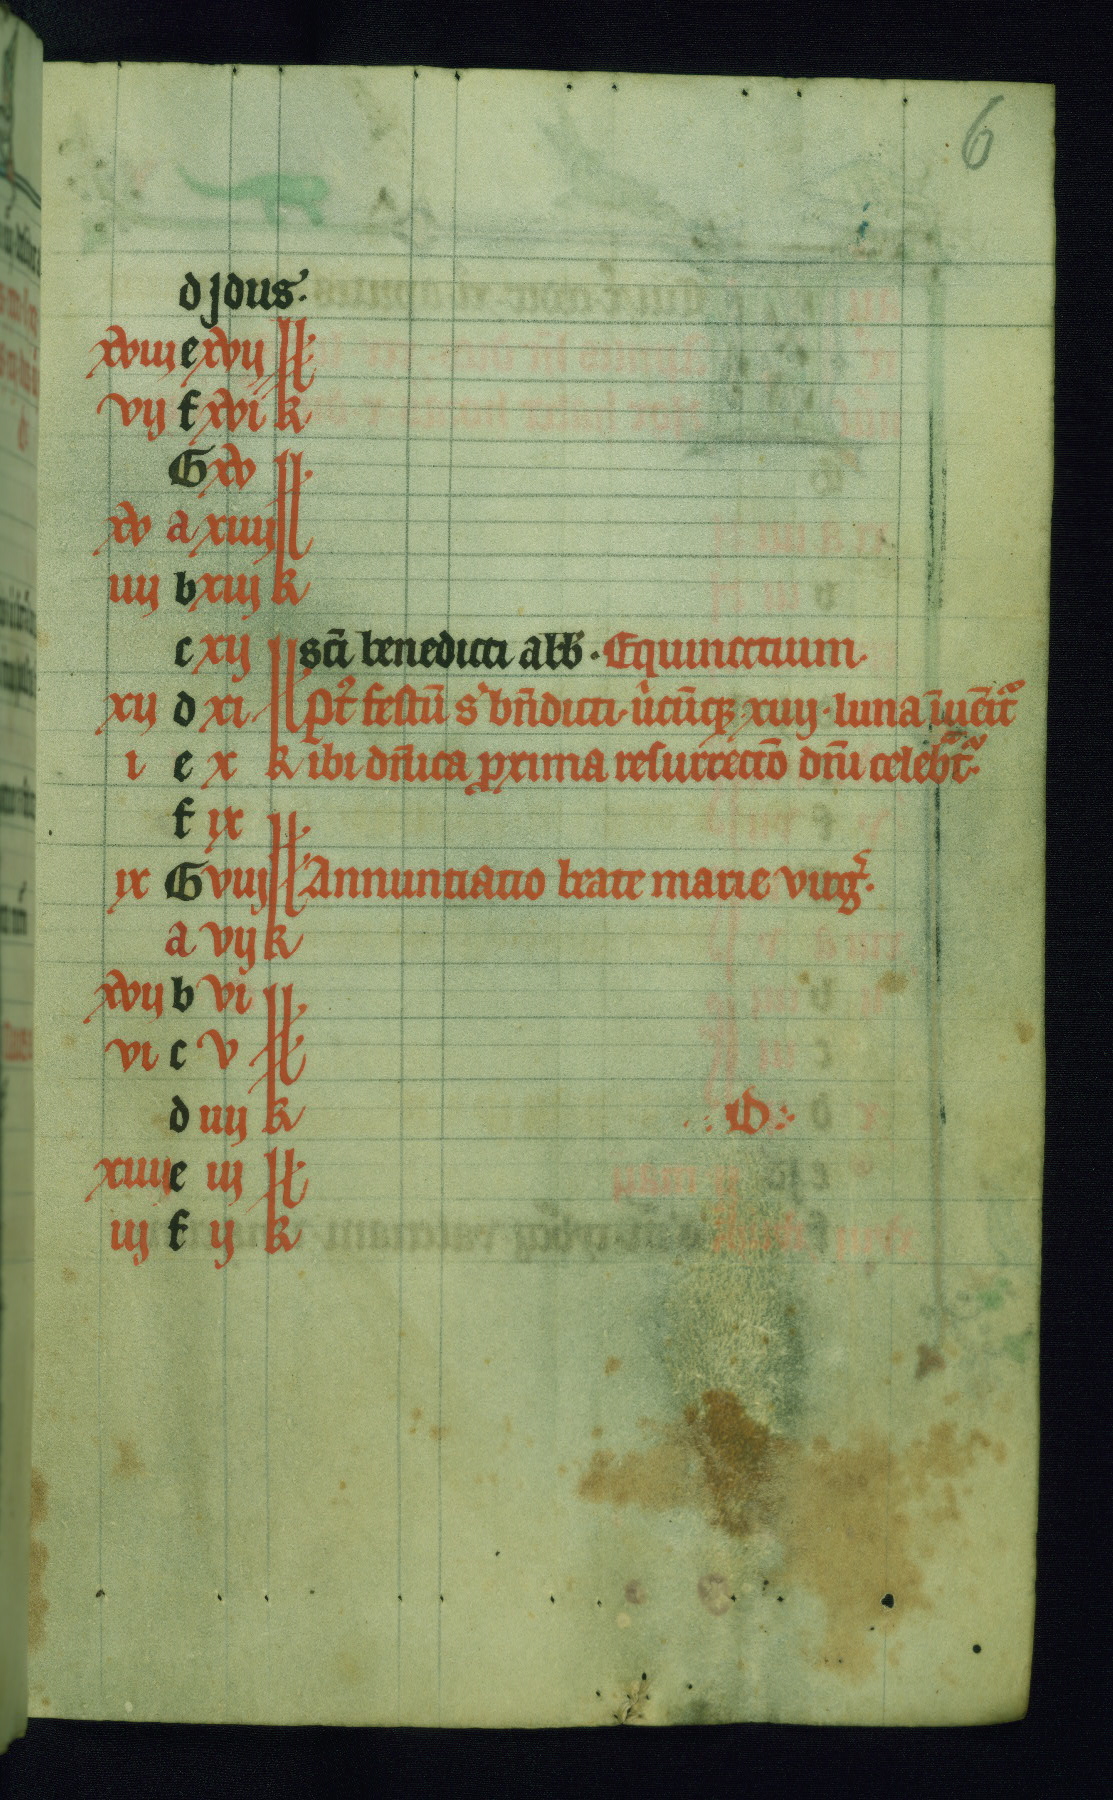 6
d Jdus.
xviij e xvij kl
vij f xvi k
G xv kl
xv a xiiij kl
iiij b xiij k
c xij kl sc̄i benedicti abb̄. Equinoctium.
xij d xi kl Pt̄ festū s bn̄dicti. ūcūq; xiiij. luna īuēit̄
i e x k ibi dn̄ica prima resurrectō dn̄i celebt̄.
f ix kl
ix G viij kl Annuntiatio beate marie virḡ.
a vij k
xvij b vi kl
vi c v kl
d iiij k D.
xiiij e iij kl
iij f ij k